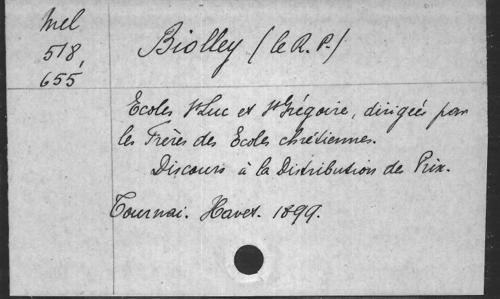 Mel
518,
655
Biolley (le R. P.)
Ecoles St Luc et St Grégoire, dirigées par
les Frères des Ecoles chrétiennes.
Discours à la Distribution de Prix.
Tournai. Havet. 1899.